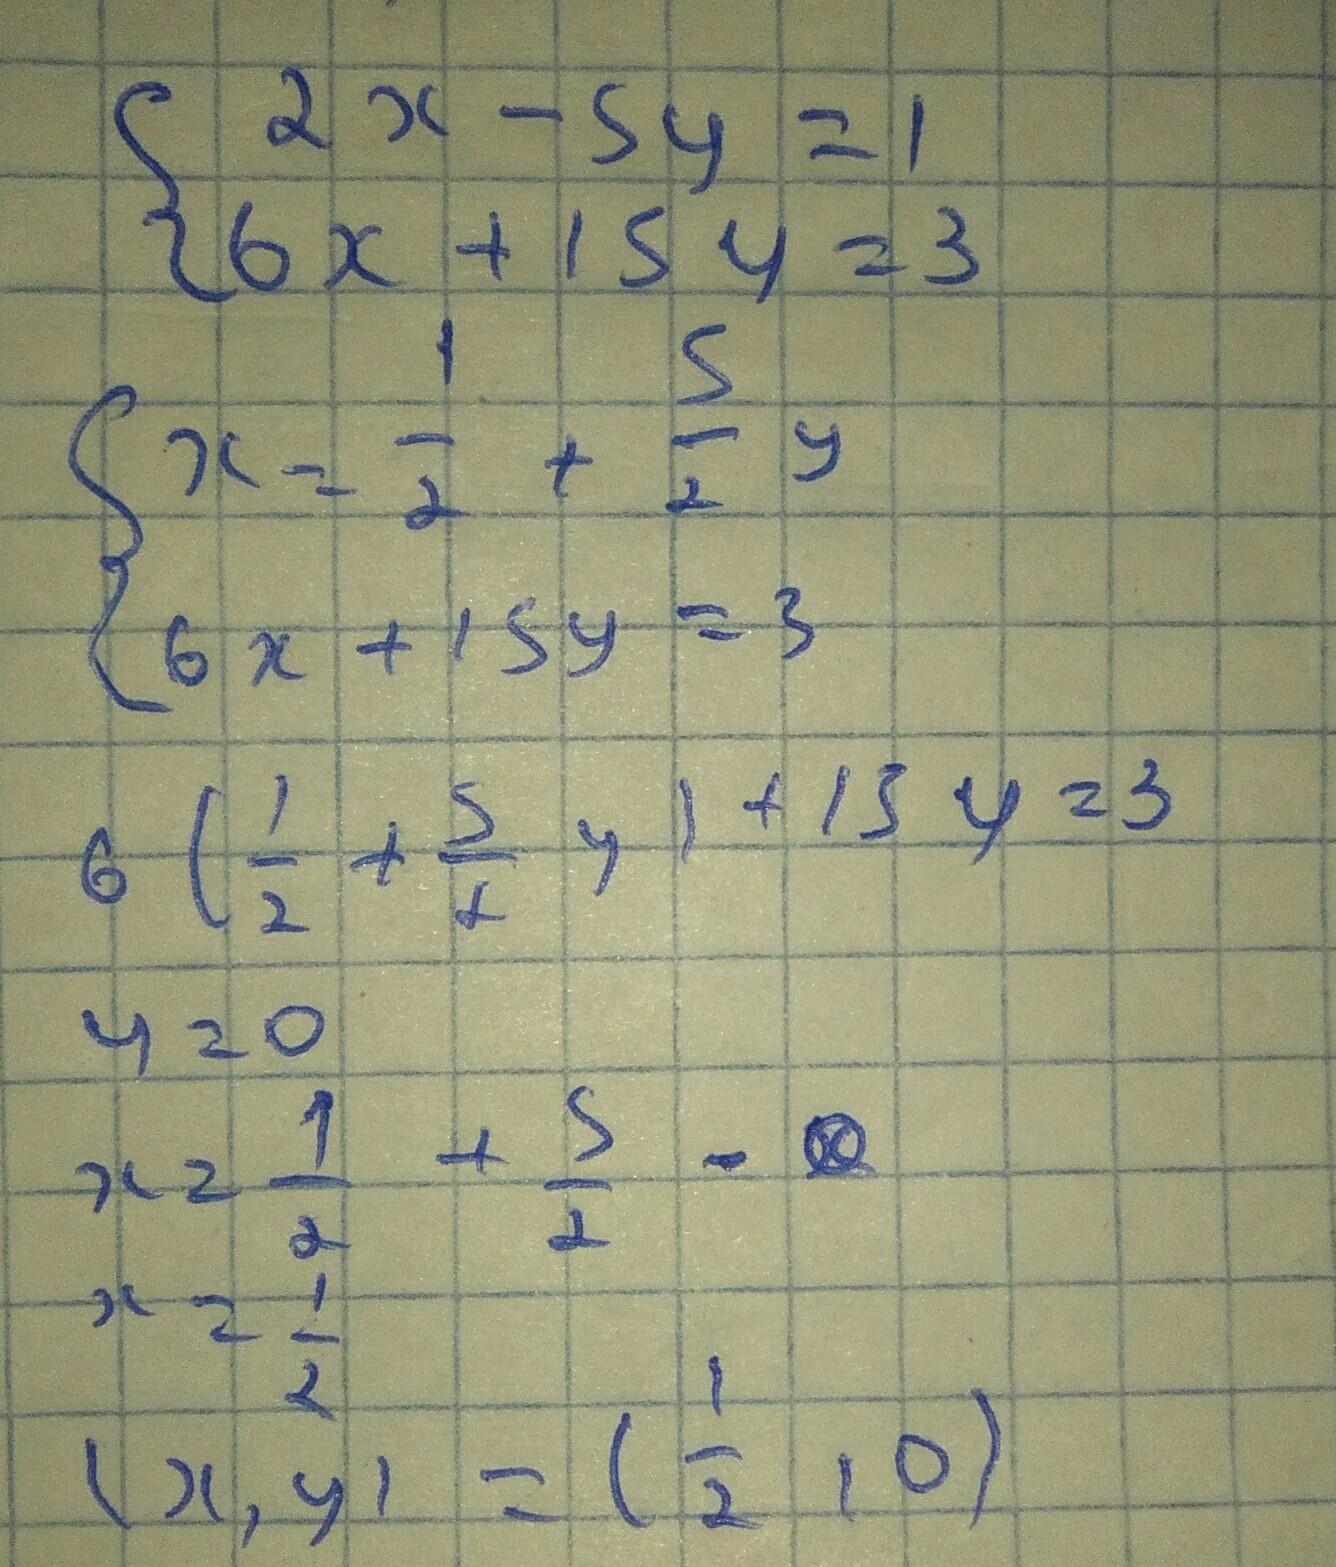 2x - 5y = 1
6x + 15y = 3
x = 1/2 + 5/2 y
6x + 15y = 3
6 (1/2 + 5/2 y) + 15y = 3
y = 0
x = 1/2 + 5/2 · 0
x = 1/2
(x, y) = (1/2, 0)